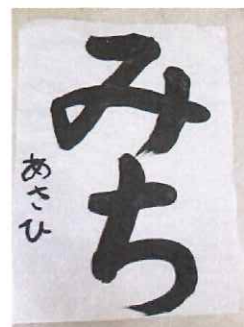 みち
あさひ